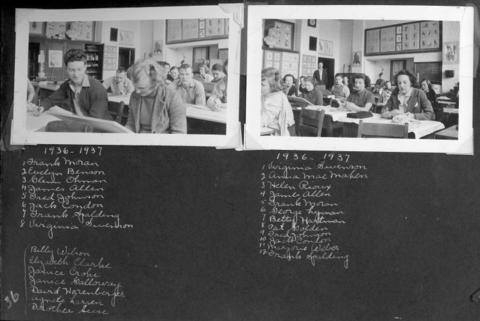 1936-1937
1 Frank Moran
2 Evelyn Benson
3 Glenn Ohman
4 James Allen
5 Fred Johnson
6 Jack Condon
7 Frank Spalding
8 Virginia Swenson
Billy Wilson
Elizabeth Clarke
Janice Croke
Janice Galloway
David Warenberger
Agnete Larsen
Dorothee Seese
36
1936-1937
1 Virginia Swenson
2 Anna Mae Mahen
3 Helen Rioux
4 James Allen
5 Frank Moran
6 George Lyman
7 Betty Hartman
8 Pat Golden
9 Fred Johnson
10 Jack Condon
11 Marjorie Weber
12 Frank Spalding